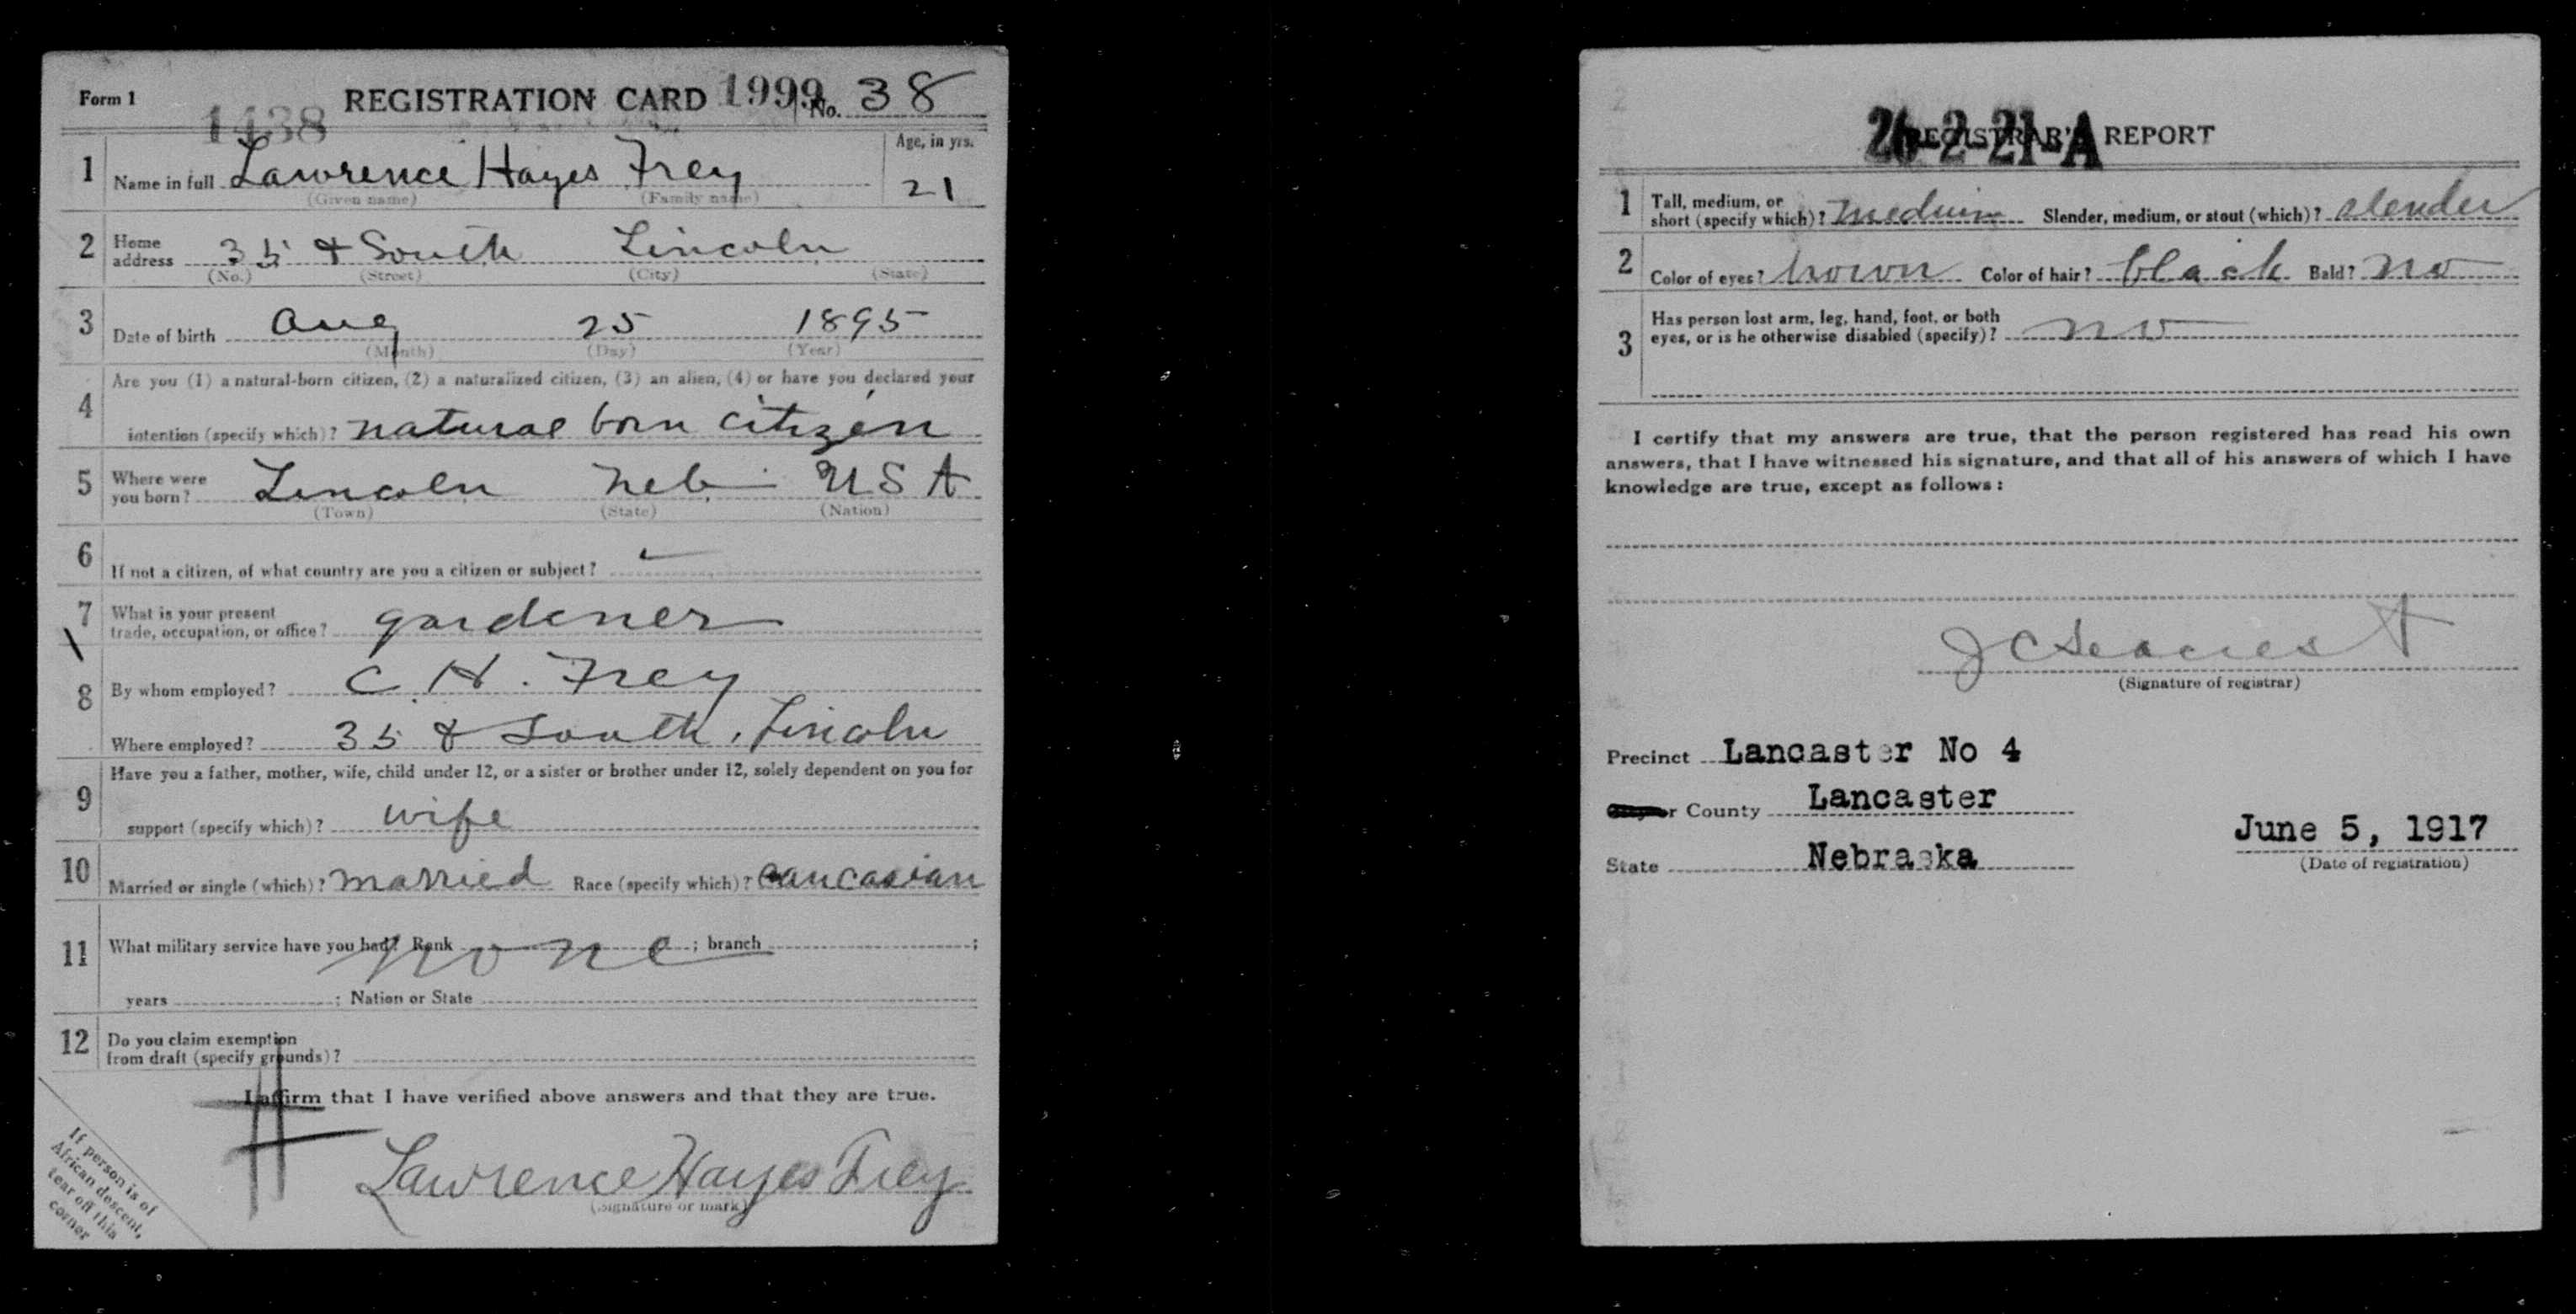 Form 1 REGISTRATION CARD 1999 No. 38
1438
1 Name in full Lawrence Hayes Frey Age, in yrs. 21
(Given name) (Family name)
2 Home address 35 & South Lincoln
(No.) (Street) (City) (State)
3 Date of birth Aug 25 1895
(Month) (Day) (Year)
4 Are you (1) a natural-born citizen, (2) a naturalized citizen, (3) an alien, (4) or have you declared your
intention (specify which)? natural born citizen
5 Where were you born? Lincoln Neb USA
(Town) (State) (Nation)
6 If not a citizen, of what country are you a citizen or subject?
7 What is your present trade, occupation, or office? gardener
8 By whom employed? C. H. Frey
Where employed? 35 & South, Lincoln
9 Have you a father, mother, wife, child under 12, or a sister or brother under 12, solely dependent on you for
support (specify which)? wife
10 Married or single (which)? married Race (specify which)? caucasian
11 What military service have you had? Rank none ; branch ;
years ; Nation or State
12 Do you claim exemption
from draft (specify grounds)?
I affirm that I have verified above answers and that they are true.
Lawrence Hayes Frey
(Signature or mark)
If person is of
African descent,
tear off this
corner
26-2-21-A
REGISTRAR'S REPORT
1 Tall, medium, or
short (specify which)? medium Slender, medium, or stout (which)? slender
2 Color of eyes? brown Color of hair? black Bald? no
3 Has person lost arm, leg, hand, foot, or both
eyes, or is he otherwise disabled (specify)? no
I certify that my answers are true, that the person registered has read his own
answers, that I have witnessed his signature, and that all of his answers of which I have
knowledge are true, except as follows:
J C Seacrest
(Signature of registrar)
Precinct Lancaster No 4
County Lancaster
State Nebraska
June 5, 1917
(Date of registration)